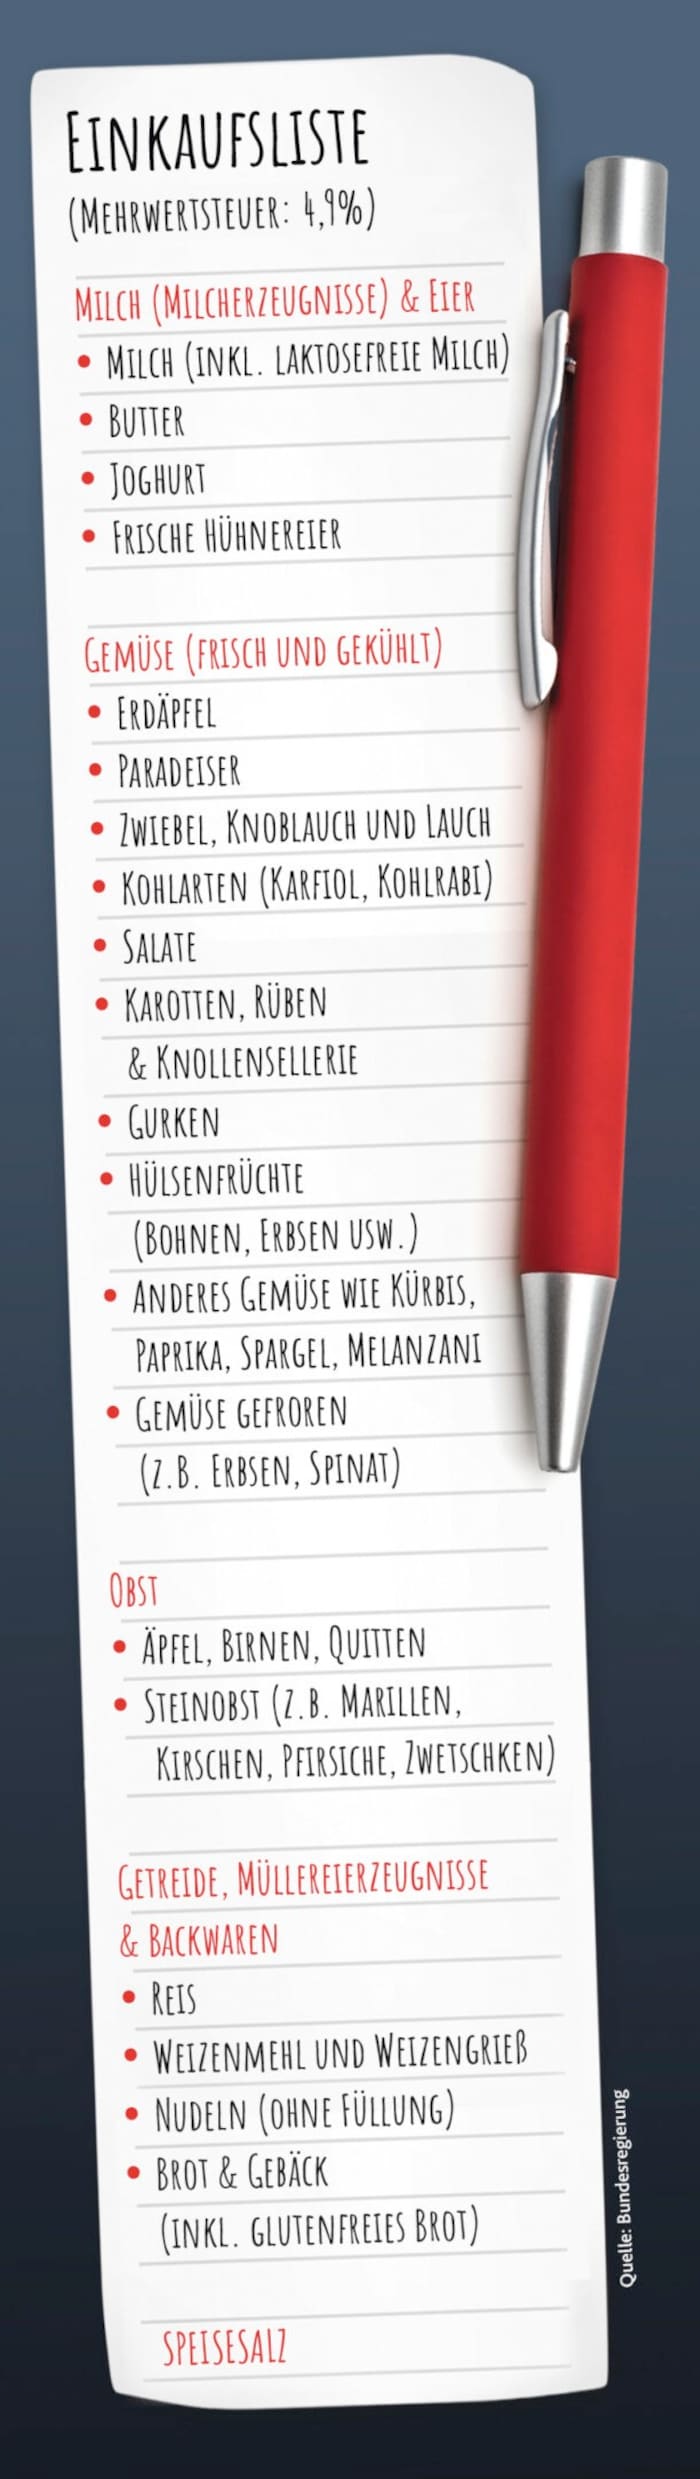 EINKAUFSLISTE
(MEHRWERTSTEUER: 4,9%)
MILCH (MILCHERZEUGNISSE) & EIER
• MILCH (INKL. LAKTOSEFREIE MILCH)
• BUTTER
• JOGHURT
• FRISCHE HÜHNEREIER
GEMÜSE (FRISCH UND GEKÜHLT)
• ERDÄPFEL
• PARADEISER
• ZWIEBEL, KNOBLAUCH UND LAUCH
• KOHLARTEN (KARFIOL, KOHLRABI)
• SALATE
• KAROTTEN, RÜBEN
& KNOLLENSELLERIE
• GURKEN
• HÜLSENFRÜCHTE
(BOHNEN, ERBSEN USW.)
• ANDERES GEMÜSE WIE KÜRBIS,
PAPRIKA, SPARGEL, MELANZANI
• GEMÜSE GEFROREN
(Z.B. ERBSEN, SPINAT)
OBST
• ÄPFEL, BIRNEN, QUITTEN
• STEINOBST (Z.B. MARILLEN,
KIRSCHEN, PFIRSICHE, ZWETSCHKEN)
GETREIDE, MÜLLEREIERZEUGNISSE
& BACKWAREN
• REIS
• WEIZENMEHL UND WEIZENGRIEß
• NUDELN (OHNE FÜLLUNG)
• BROT & GEBÄCK
(INKL. GLUTENFREIES BROT)
SPEISESALZ
Quelle: Bundesregierung